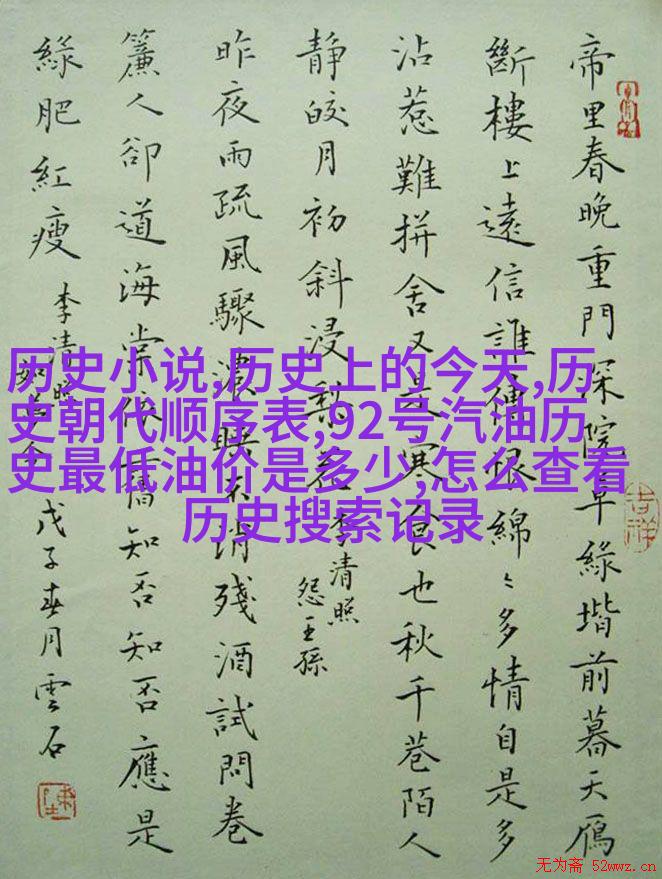 帝里春晚重門深院草綠堦前暮天鴈
斷樓上遠信誰傳恨綿〻多情自是多
沾惹難拼舍又是寒食也秋千巷陌人
静皎月初斜浸梨花 李清照
怨王孫
昨夜雨疏風驟濃睡不消殘酒試問卷
簾人卻道海棠依舊知否知否應是
綠肥紅瘦 李清照
如夢令 戊子春月雲石
历史小说,历史上的今天,历
史朝代顺序表,92号汽油历
史最低油价是多少,怎么查看
历史搜索记录
无为斋 52wwz.cn